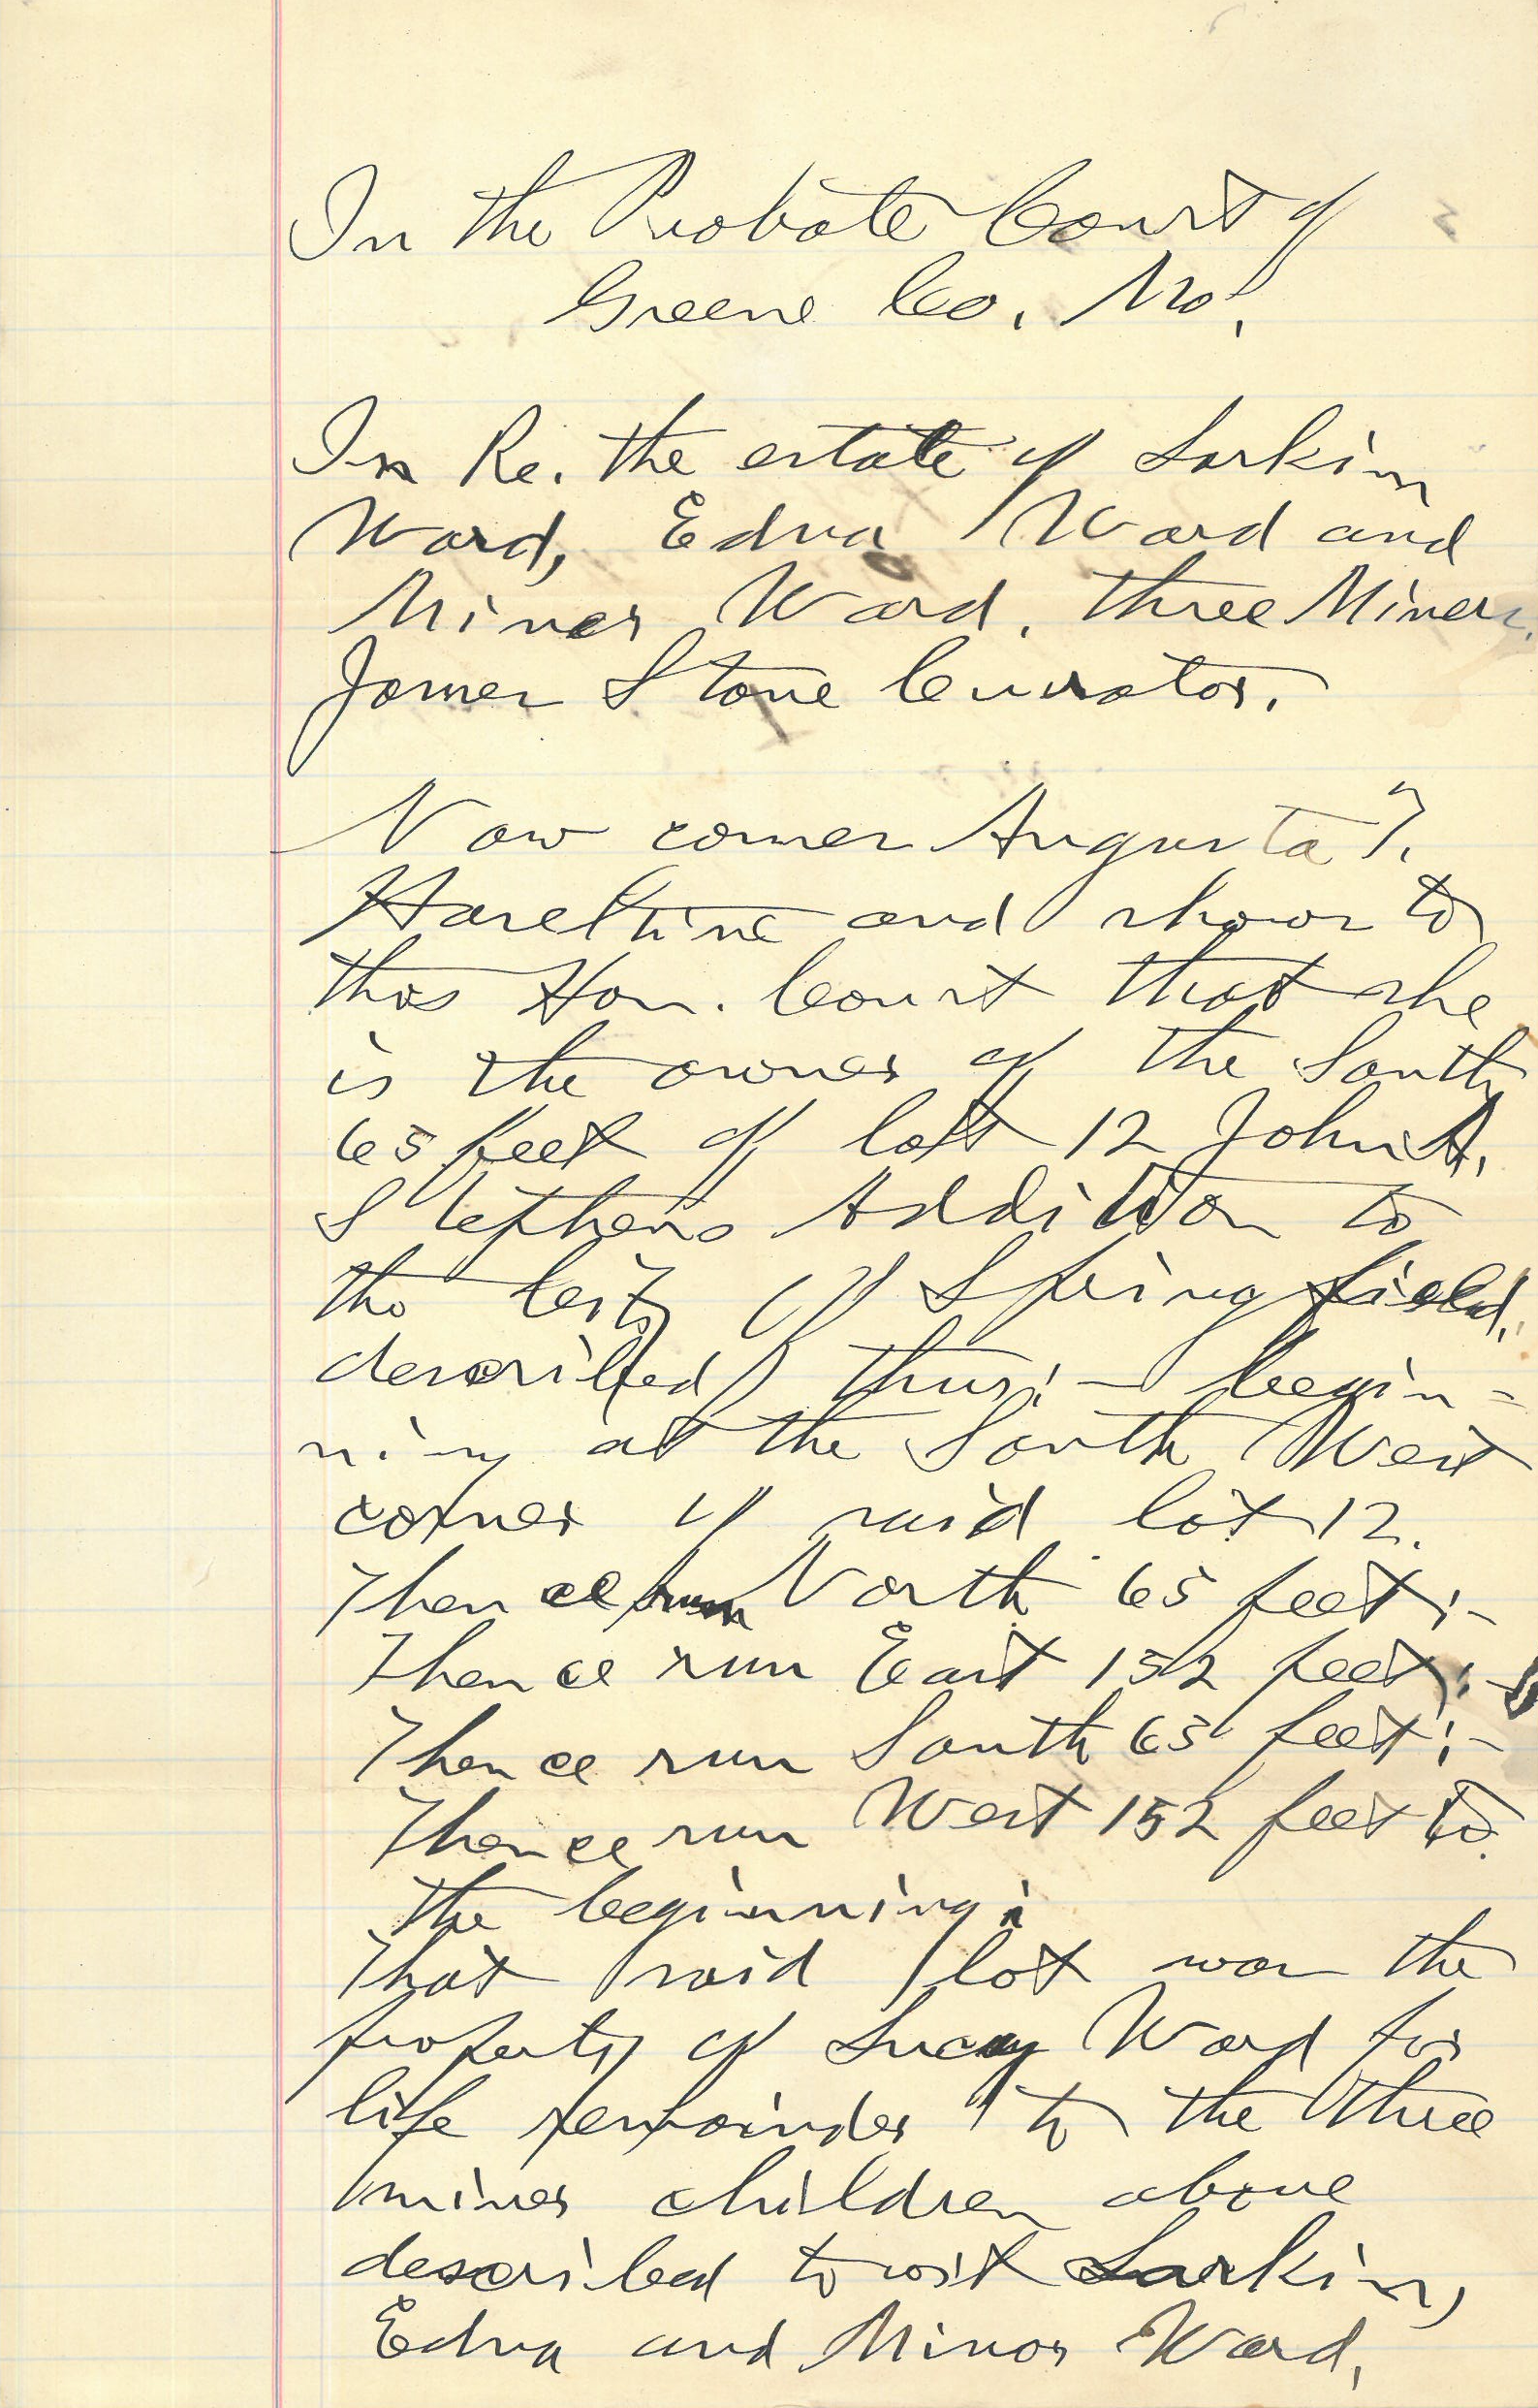 In the Probate Court of
Greene Co. Mo.
In Re. the estate of Larkin
Ward, Edna Ward and
Minor Ward. three Minors.
James Stone Curator.
Now comes Augusta T.
Haseltine and shows to
this Hon. Court that she
is the owner of the South
65 feet of lot 12 John A.
Stephens Addition to
the City of Springfield,
described thus:- begin-
ning at the South West
corner of said lot 12.
Thence run North 65 feet;-
Thence run East 152 feet;-
Thence run South 65 feet;-
Thence run West 152 feet to
the beginning;
That said lot was the
property of Lucy Ward for
life remainder to the three
minor children above
described towit Larkin,
Edna and Minor Ward,